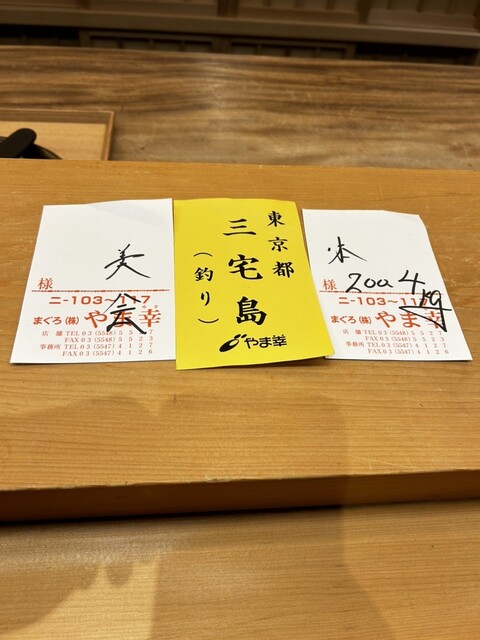 美
様
ニ-103~117
まぐろ(株) やま幸
店舗 TEL 03 (5548) 5 5 2 7
FAX 03 (5548) 5 5 2 3
事務所 TEL 03 (5547) 4 1 2 7
FAX 03 (5547) 4 1 2 6
東京都
三宅島
(釣り)
やま幸
本
様
200a 4
ニ-103~117
まぐろ(株) やま幸
店舗 TEL 03 (5548) 5 5 2 7
FAX 03 (5548) 5 5 2 3
事務所 TEL 03 (5547) 4 1 2 7
FAX 03 (5547) 4 1 2 6